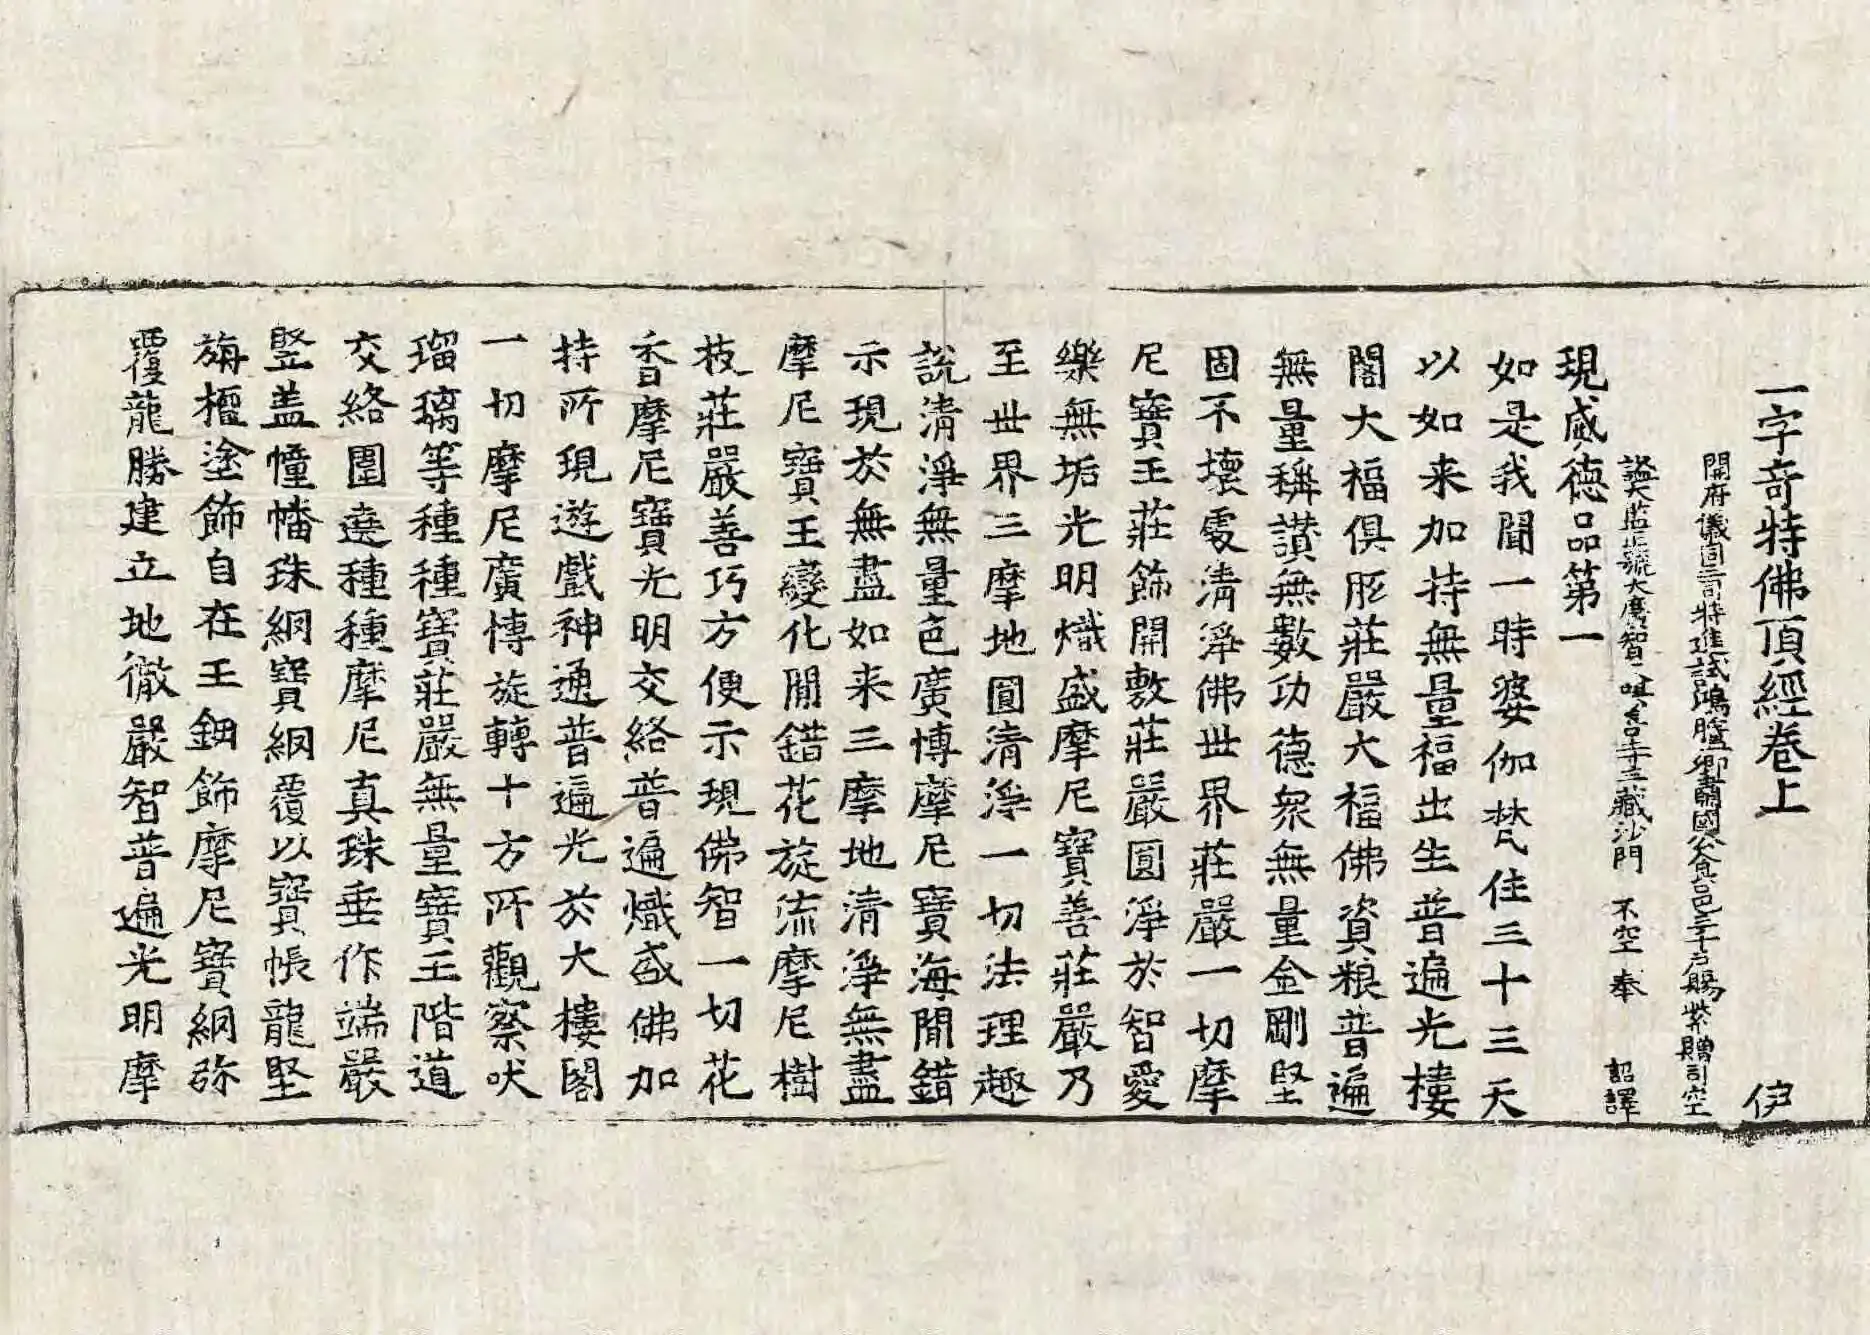 一字奇特佛頂經卷上 伊
開府儀同三司特進試鴻臚卿肅國公食邑三千戶賜紫贈司空
謚大監正號大廣智大興善寺三藏沙門 不空 奉 詔譯
現威德品第一
如是我聞一時婆伽梵住三十三天
以如来加持無量福出生普遍光樓
閣大福俱胝莊嚴大福佛資粮普遍
無量稱讃無數功德眾無量金剛堅
固不壞處清淨佛世界莊嚴一切摩
尼寶王莊飾開敷莊嚴圓淨於智愛
樂無垢光明熾盛摩尼寶善莊嚴乃
至世界三摩地圓清淨一切法理趣
說清淨無量色廣博摩尼寶海間錯
示現於無盡如来三摩地清淨無盡
摩尼寶王變化間錯花旋流摩尼樹
枝莊嚴善巧方便示現佛智一切花
香摩尼寶光明交絡普遍熾盛佛加
持所現遊戲神通普遍光於大樓閣
一切摩尼廣博旋轉十方所觀察吠
瑠璃等種種寶莊嚴無量寶王階道
交絡圍遶種種摩尼真珠垂作端嚴
竪盖幢幡珠網寶網覆以寶帳龍堅
旃檀塗飾自在王鈿飾摩尼寶網弥
覆龍勝建立地徹嚴智普遍光明摩